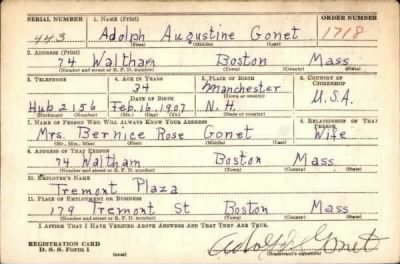 SERIAL NUMBER 1. NAME (Print) ORDER NUMBER
443 Adolph Augustine Gonet 1718
(First) (Middle) (Last)
2. ADDRESS (Print)
74 Waltham Boston Mass
(Number and street or R. F. D. number) (Town) (County) (State)
3. TELEPHONE 4. AGE IN YEARS 5. PLACE OF BIRTH 6. COUNTRY OF CITIZENSHIP
34 Manchester
DATE OF BIRTH (Town or county)
Hub 2156 Feb. 16, 1907 N.H. U.S.A.
(Exchange) (Number) (Mo.) (Day) (Yr.) (State or country)
7. NAME OF PERSON WHO WILL ALWAYS KNOW YOUR ADDRESS 8. RELATIONSHIP OF THAT PERSON
Mrs. Bernice Rose Gonet Wife
(Mr., Mrs., Miss) (First) (Middle) (Last)
9. ADDRESS OF THAT PERSON
74 Waltham Boston Mass
(Number and street or R. F. D. number) (Town) (County) (State)
10. EMPLOYER'S NAME
Tremont Plaza
11. PLACE OF EMPLOYMENT OR BUSINESS
179 Tremont St Boston Mass
(Number and street or R. F. D. number) (Town) (County) (State)
I AFFIRM THAT I HAVE VERIFIED ABOVE ANSWERS AND THAT THEY ARE TRUE.
REGISTRATION CARD
D. S. S. Form 1 (over) Adolph Gonet
(Registrant's signature)